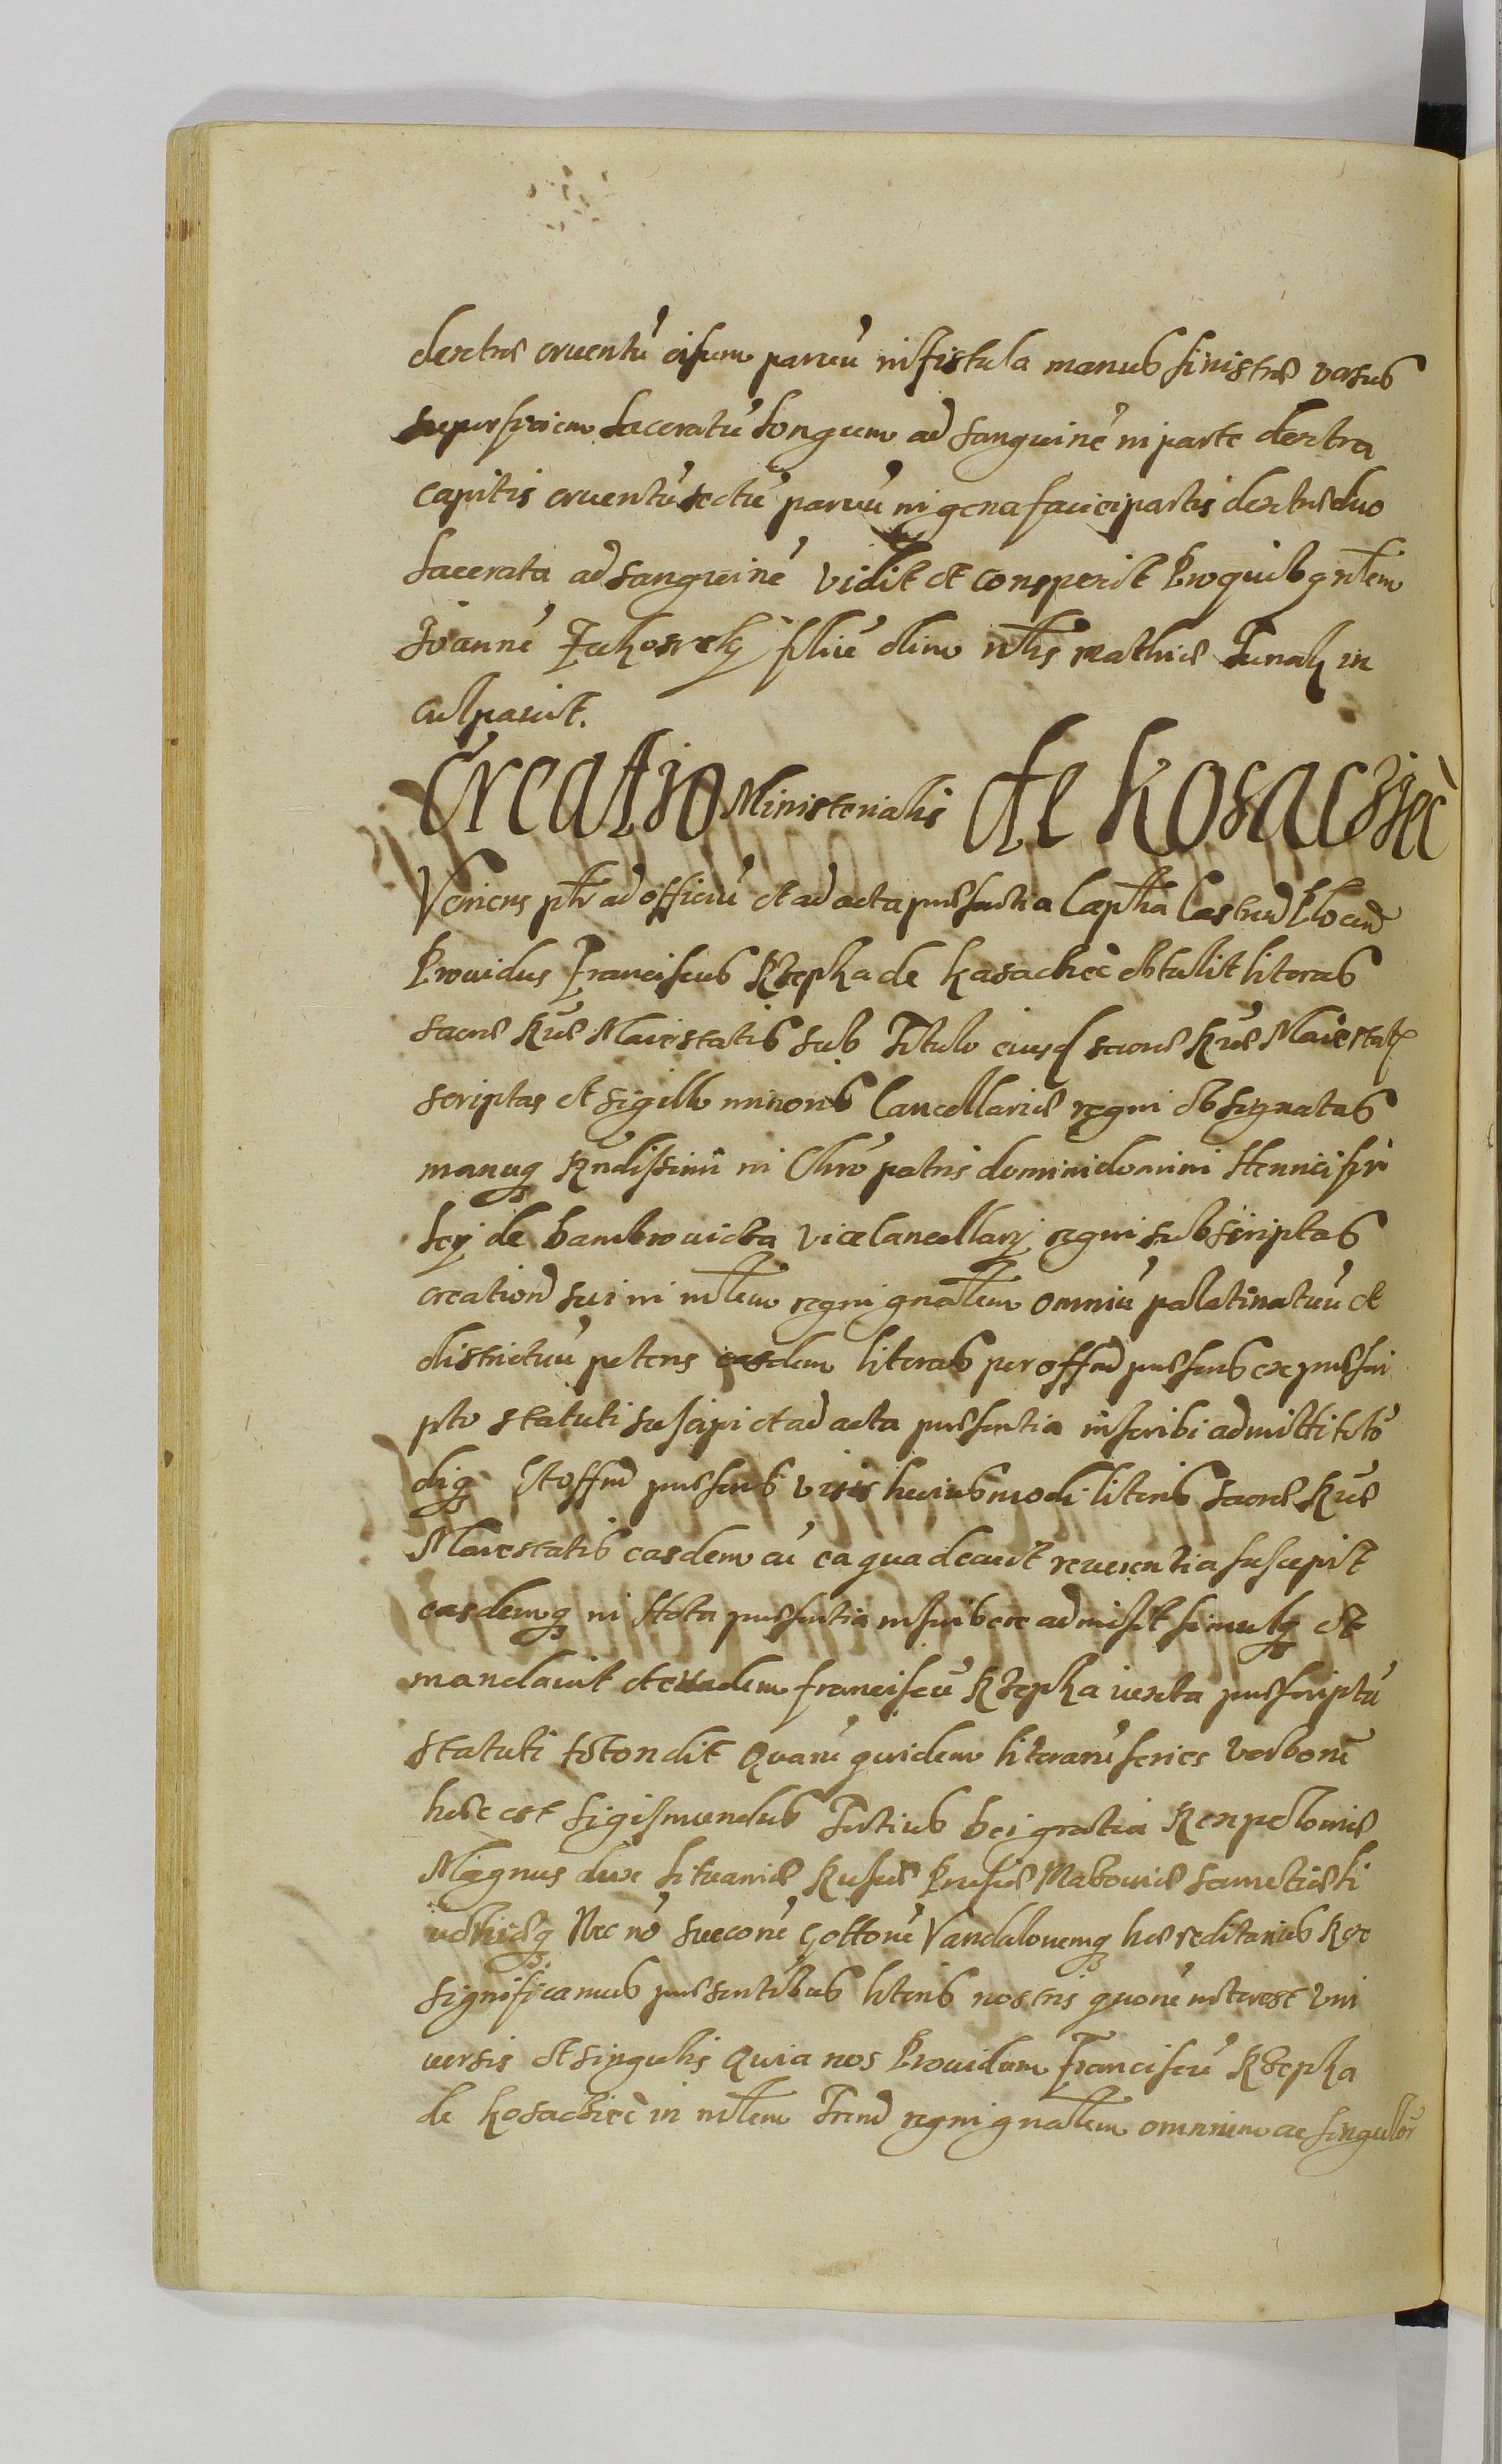 dextrae cruentu cisum parvu in fistula manus sinistrae versus
superficiem laceratu longum ad sanguine in parte dextra
capitis cruentu sectu parvu in gena faciei partis dextrae duo
lacerata ad sanguine vidit et conspexit Pro quib gnlem
Joanne filiu olim nlis Mathiae in
culpavit.
Creatio Ministerialis de Kosacziec
Veniens ptr ad officiu et ad acta praesentia Captlia Castren Plocen
Providus Franciscus Rzepka de Kosacziec obtulit literas
sacrae Rae Maiestatis sub Titulo eiusd sacrae Rae Maiestatis
scriptas et sigillo minoris Cancellariae regni obsignatas
manuq Rndissimi in Chro patris domini domini Henrici fir
ley de Dambrovicza Vicecancellarij regni subscriptas
creation sui in mlem regni gnalem omniu palatinatuu et
districtuu petens easdem literas per offm praesens ex praescri
pto statuti suscipi et ad acta praesentia inscribi admitti toto
diq Et offm praesens visis huiusmodi literis sacrae Rae
Maiestatis easdem cu ea qua decuit reverentia suscepit
easdemq in Acta praesentia inscribere admisit simulq et
mandavit et eundem Franciscu Rzepka iuxta praescriptu
statuti totondit Quaru quidem literaru series verboru
haec est Sigismundus Tertius Dei gratia Rex poloniae
Magnus dux Lituaniae Russiae Prusiae Masoviae Samoitiae li
voniaeq Nec no Suecoru Gottoru Vandalorumq haereditarius Rex
significamus praesentibus literis nostris quoru interest Uni
versis et singulis Quia nos Providum Franciscu Rzepka
de Kosacziec in mlem Tren regni gnalem omnium ac singulor